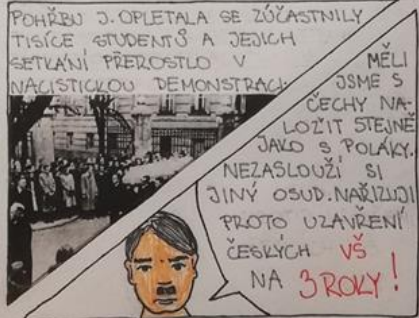 POHŘBU J. OPLETALA SE ZÚČASTNILY
TISÍCE STUDENTŮ A JEJICH
SETKÁNÍ PŘEROSTLO V
NACISTICKOU DEMONSTRACI.
MĚLI
JSME S
ČECHY NA-
LOŽIT STEJNĚ
JAKO S POLÁKY.
NEZASLOUŽÍ SI
JINÝ OSUD. NAŘIZUJI
PROTO UZAVŘENÍ
ČESKÝCH VŠ
NA 3 ROKY!